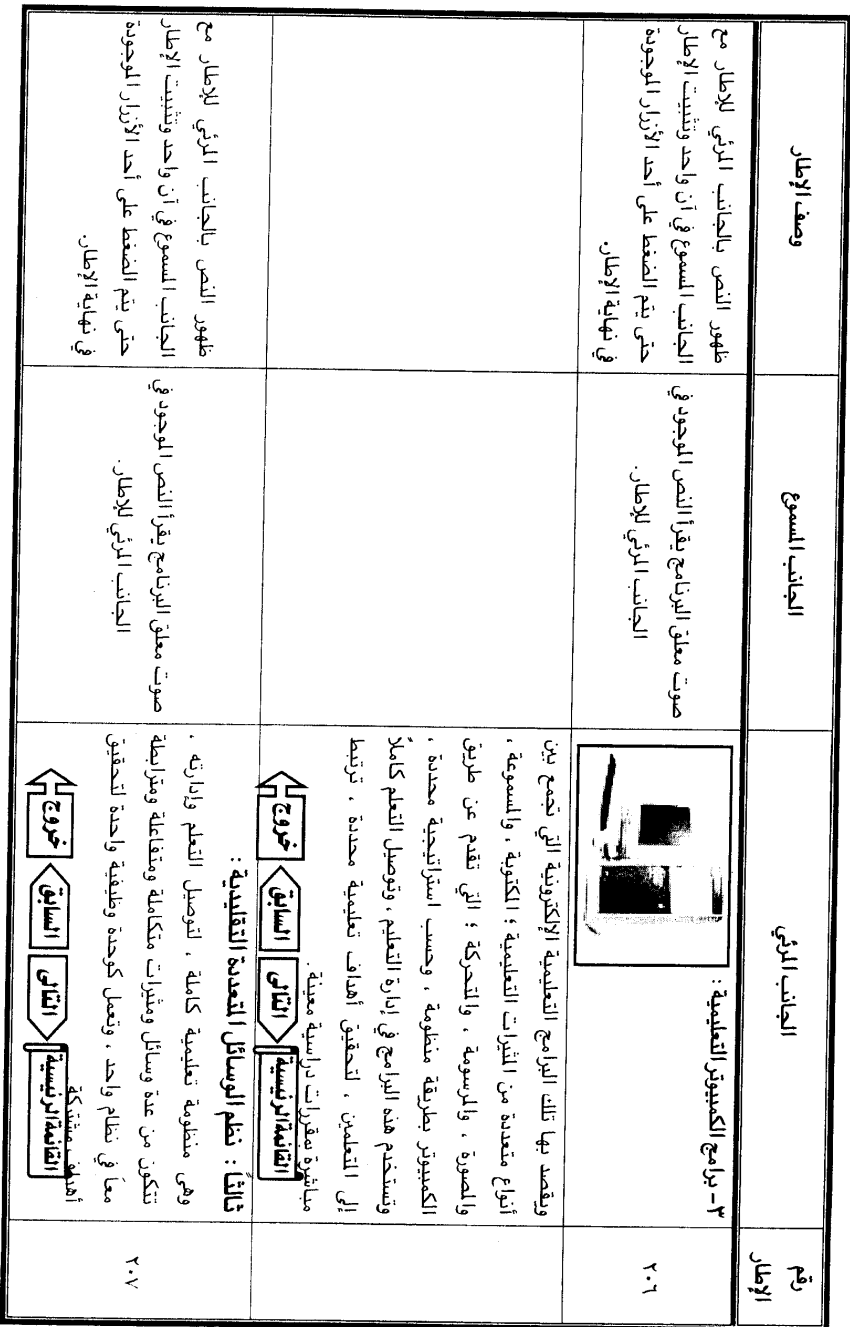 رقم
الإطار
الجانب المرئي
الجانب المسموع
وصف الإطار
٢٠٦
٣- برامج الكمبيوتر التعليمية :
ويقصد بها تلك البرامج التعليمية الإلكترونية التي تجمع بين
أنواع متعددة من المثيرات التعليمية ؛ المكتوبة ، والمسموعة ،
والمصورة ، والمرسومة ، والمتحركة ؛ التي تقدم عن طريق
الكمبيوتر بطريقة منظومة ، وحسب استراتيجية محددة ،
وتستخدم هذه البرامج في إدارة التعليم ، وتوصيل التعلم كاملاً
إلى المتعلمين ، لتحقيق أهداف تعليمية محددة ، ترتبط
مباشرة بمقررات دراسية معينة .
القائمة الرئيسية
التالى
السابق
خروج
صوت معلق البرنامج يقرأ النص الموجود في
الجانب المرئي للإطار.
ظهور النص بالجانب المرئي للإطار مع
الجانب المسموع في آن واحد وتثبيت الإطار
حتى يتم الضغط على أحد الأزرار الموجودة
في نهاية الإطار.
٢٠٧
ثالثاً : نظم الوسائل المتعددة التقليدية :
وهى منظومة تعليمية كاملة ، لتوصيل التعلم وإدارته ،
تتكون من عدة وسائل ومثيرات متكاملة ومتفاعلة ومترابطة
معاً في نظام واحد ، وتعمل كوحدة وظيفية واحدة لتحقيق
أهداف مشتركة
القائمة الرئيسية
التالى
السابق
خروج
صوت معلق البرنامج يقرأ النص الموجود في
الجانب المرئي للإطار.
ظهور النص بالجانب المرئي للإطار مع
الجانب المسموع في آن واحد وتثبيت الإطار
حتى يتم الضغط على أحد الأزرار الموجودة
في نهاية الإطار.